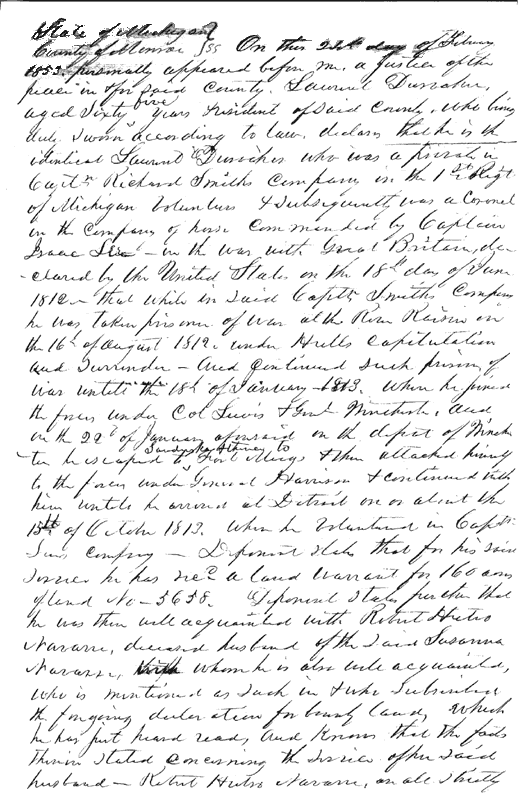 State of Michigan
County of Monroe } SS On this 22d day of
1853. personally appeared before me, a Justice of the
peace in & for said County. Laurent Durocher,
aged Sixty five Years Resident of said County, Who being
duly Sworn according to law, declares that he is the
identical Laurent Durocher who was a private in
Captn Richard Smiths Company in the 1st Regt
of Michigan Volunteers & Subsequently was a
in the Company of horse Commanded by Captain
Isaac Lee - in the war with Great Britain, de-
-clared by the United States on the 18th day of June
1812 - that while in said Captn Smiths Company
he was taken prisoner of war at the River Raisin on
the 16th of August 1812. under Hulls Capitulation
and Surrender - And Continued Such prisoner of
war untill the 18th of January 1813. When he joined
the forces under Col Lewis & Genl Winchester, and
on the 22d of January aforesaid on the defeat of Winches
ter he escaped to Sandusky & thence to Fort Meigs & then attached himself
to the forces under General Harrison & continued with
him untill he arrived at Detroit on or about the
15th of October 1813. When he Volunteered in Captn
Lees Company - Deponent States that for his said
Service he has recd a land Warrant for 160 acres
of land No - 5658. Deponent States further that
he was then well acquainted with Robert Hutro
Navarre, deceased husband of the Said Susanna
Navarre, whom he is also well acquainted,
who is mentioned as Such in & who Subscribed
the foregoing declaration for bounty land, which
he has just heard read, and Knows that the facts
therein Stated concerning the Service of her Said
husband - Robert Hutro Navarre, are all Strictly